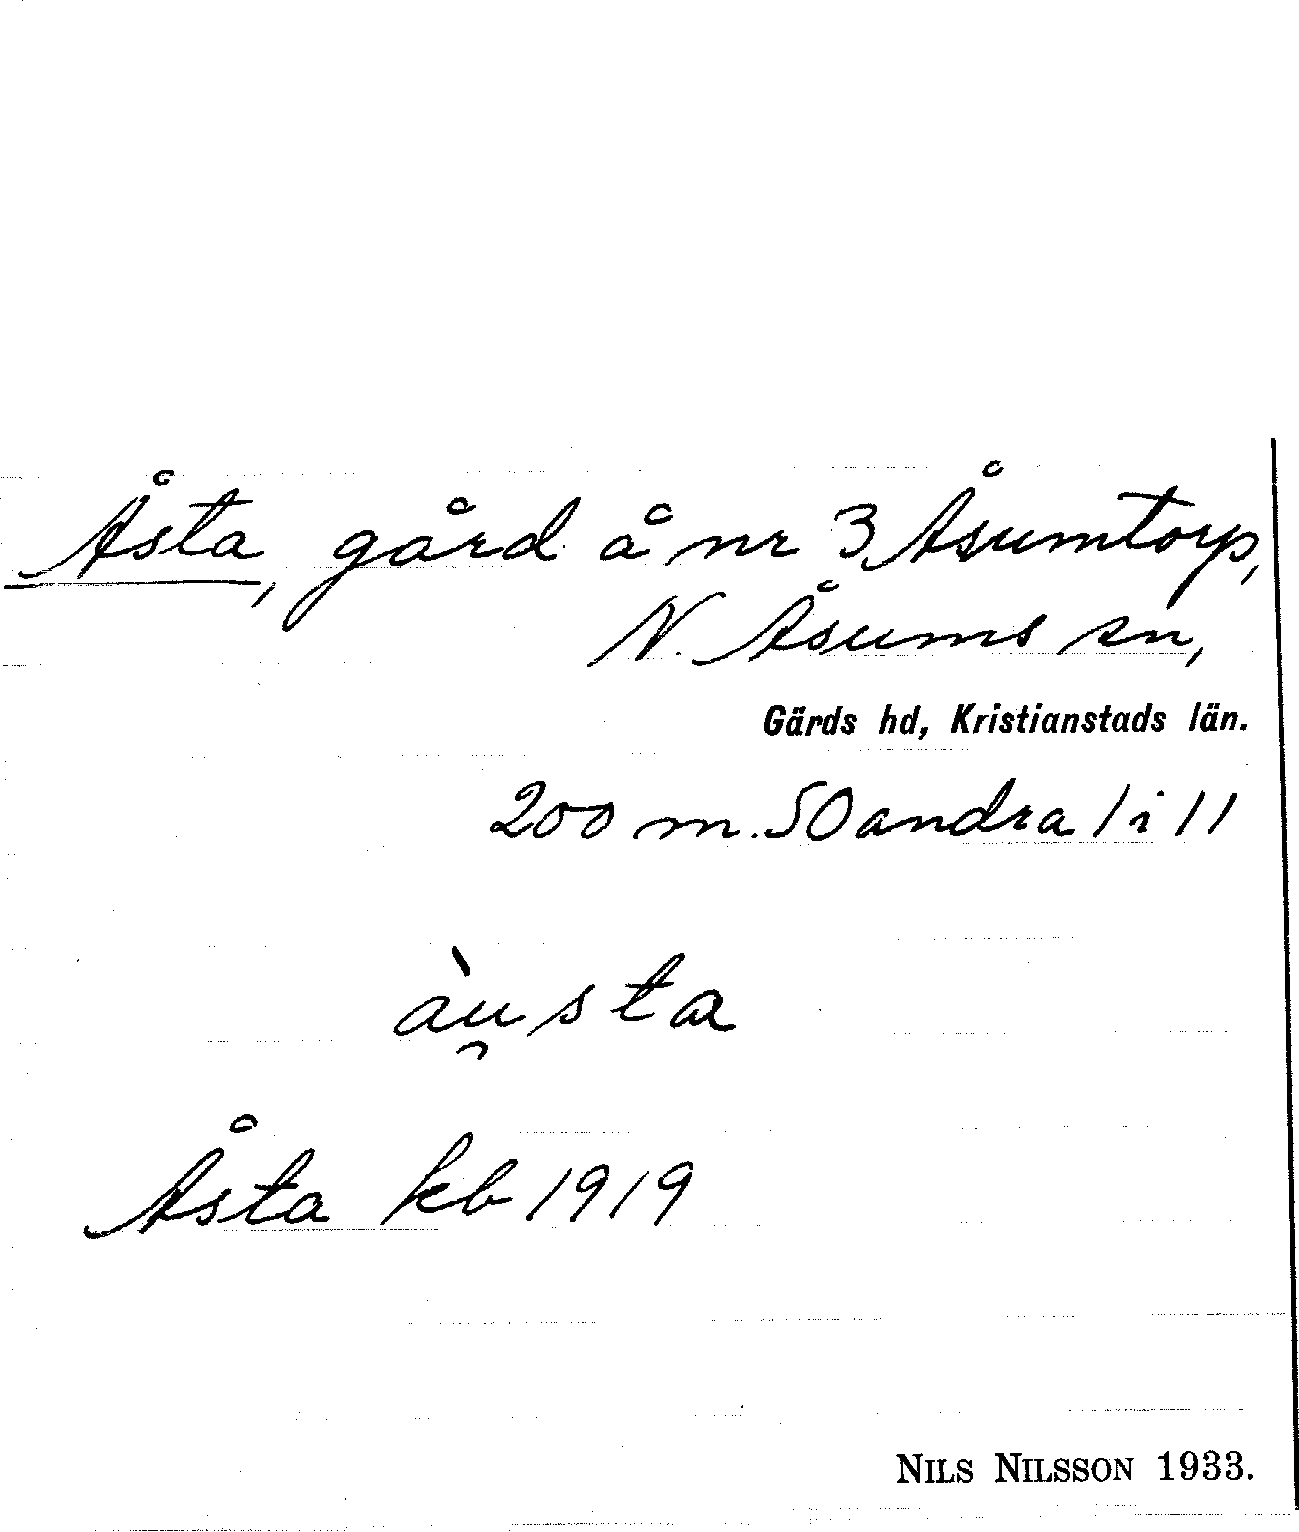 Åsta, gård å nr 3 Åsumtorp,
N. Åsums sn,
Gärds hd, Kristianstads län.
200 m. SO andra l i ll
àu̯sta
Åsta kb 1919
NILS NILSSON 1933.